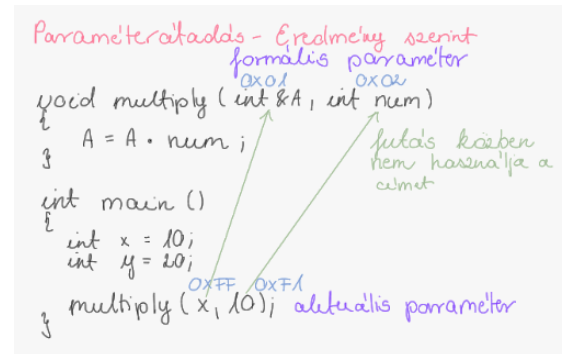 Paraméterátadás - Eredmény szerint
formális paraméter
0x01 0x02
void multiply (int &A, int num)
{
A = A • num;
}
futás közben
nem használja a
címet
int main ()
{
int x = 10;
int y = 20;
0xFF 0xF1
multiply (x, 10); aktuális paraméter
}